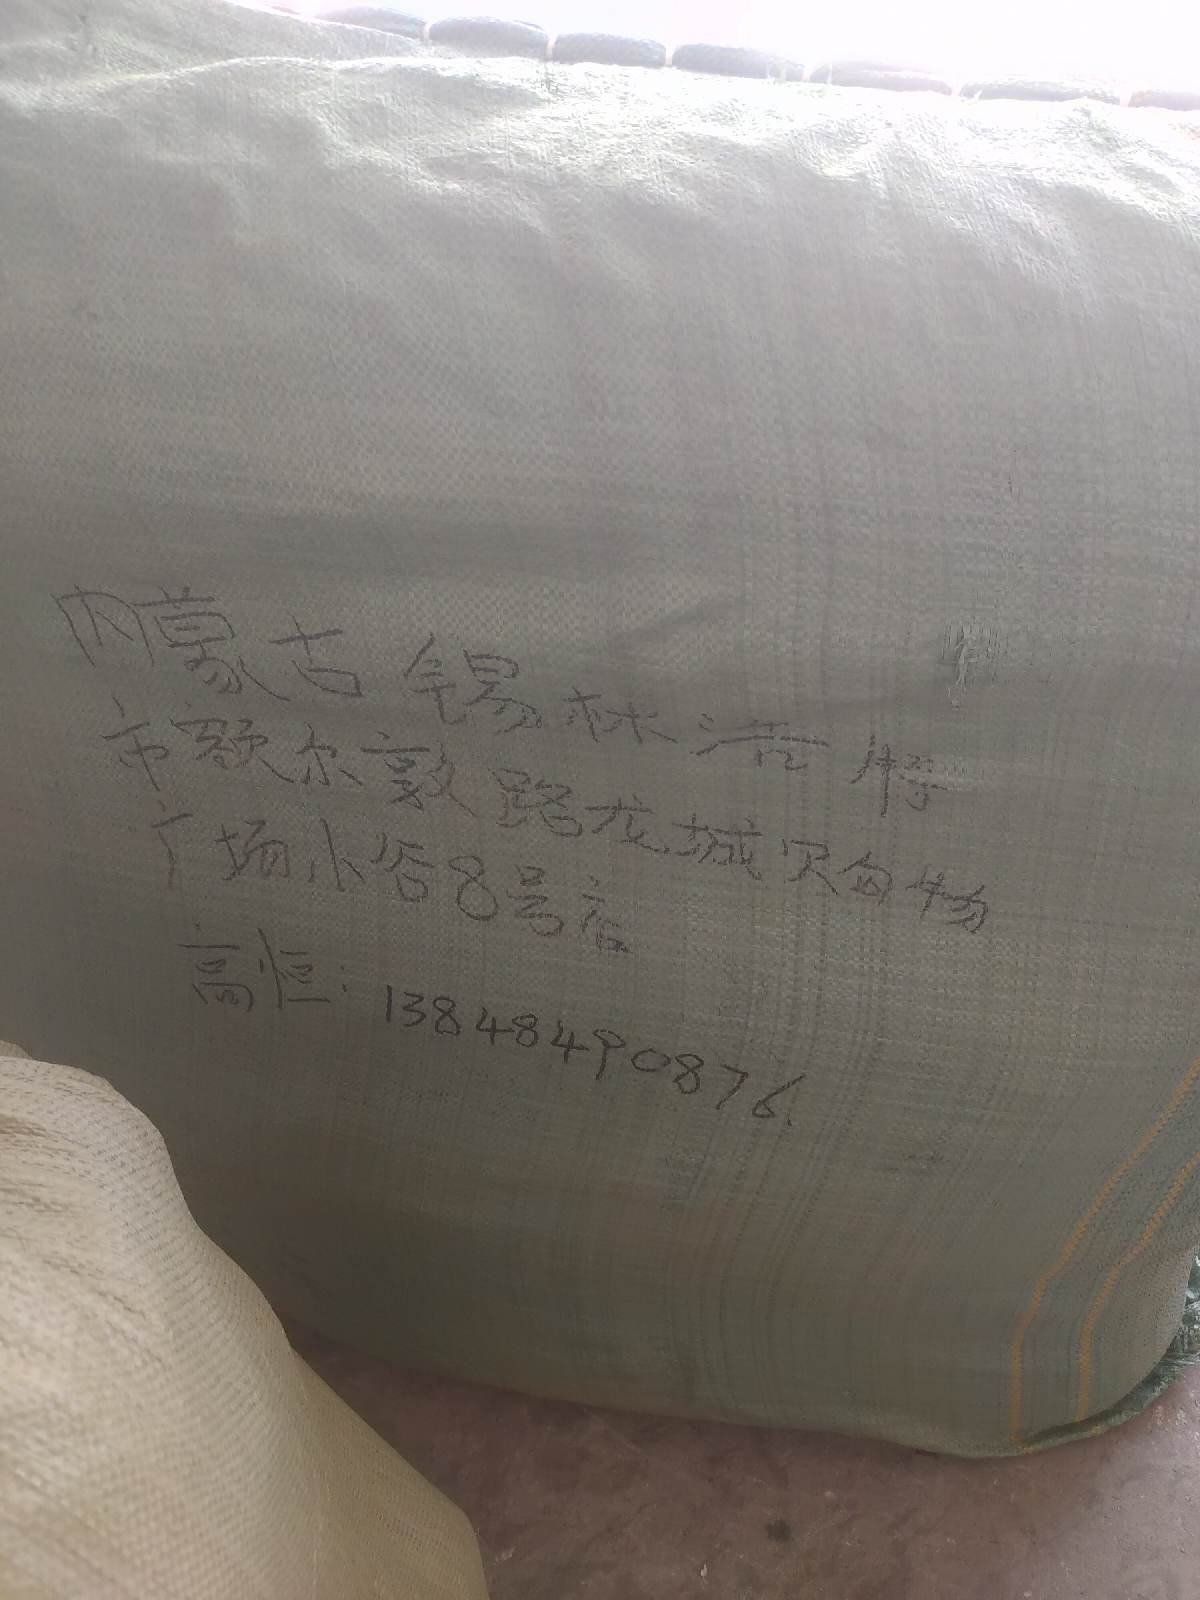 内蒙古锡林浩特
市额尔敦路龙城购物
广场小谷8号店
高恒:13848490876.